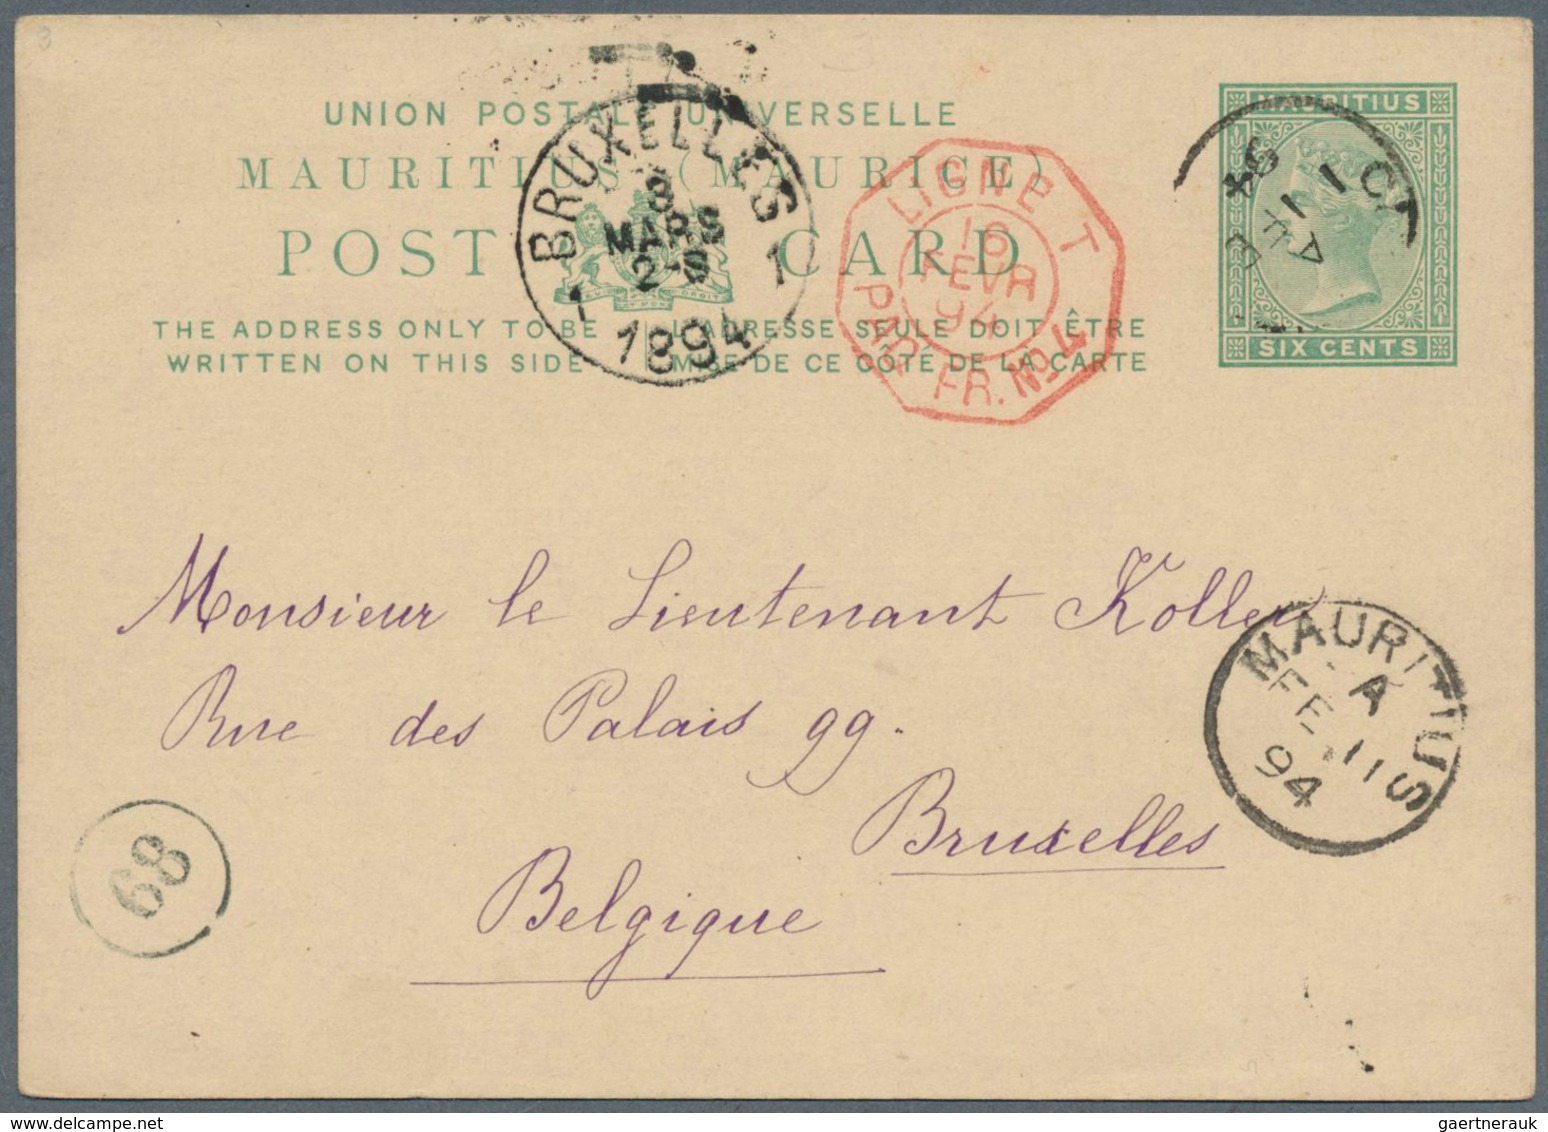 UNION POSTALE UNIVERSELLE
MAURITIUS (MAURICE)
POST CARD
THE ADDRESS ONLY TO BE
WRITTEN ON THIS SIDE
L'ADRESSE SEULE DOIT ÊTRE
MISE DE CE CÔTÉ DE LA CARTE
BRUXELLES
8
MARS
2-S
1 1
1894
LIGNE T
16
FEVR
94
PAQ. FR. No 4
MAURITIUS
SIX CENTS
94
Monsieur le Lieutenant Koller
Rue des Palais 99.
Bruxelles
Belgique
MAURITIUS
A
FE 11
94
68
gaertnerauk